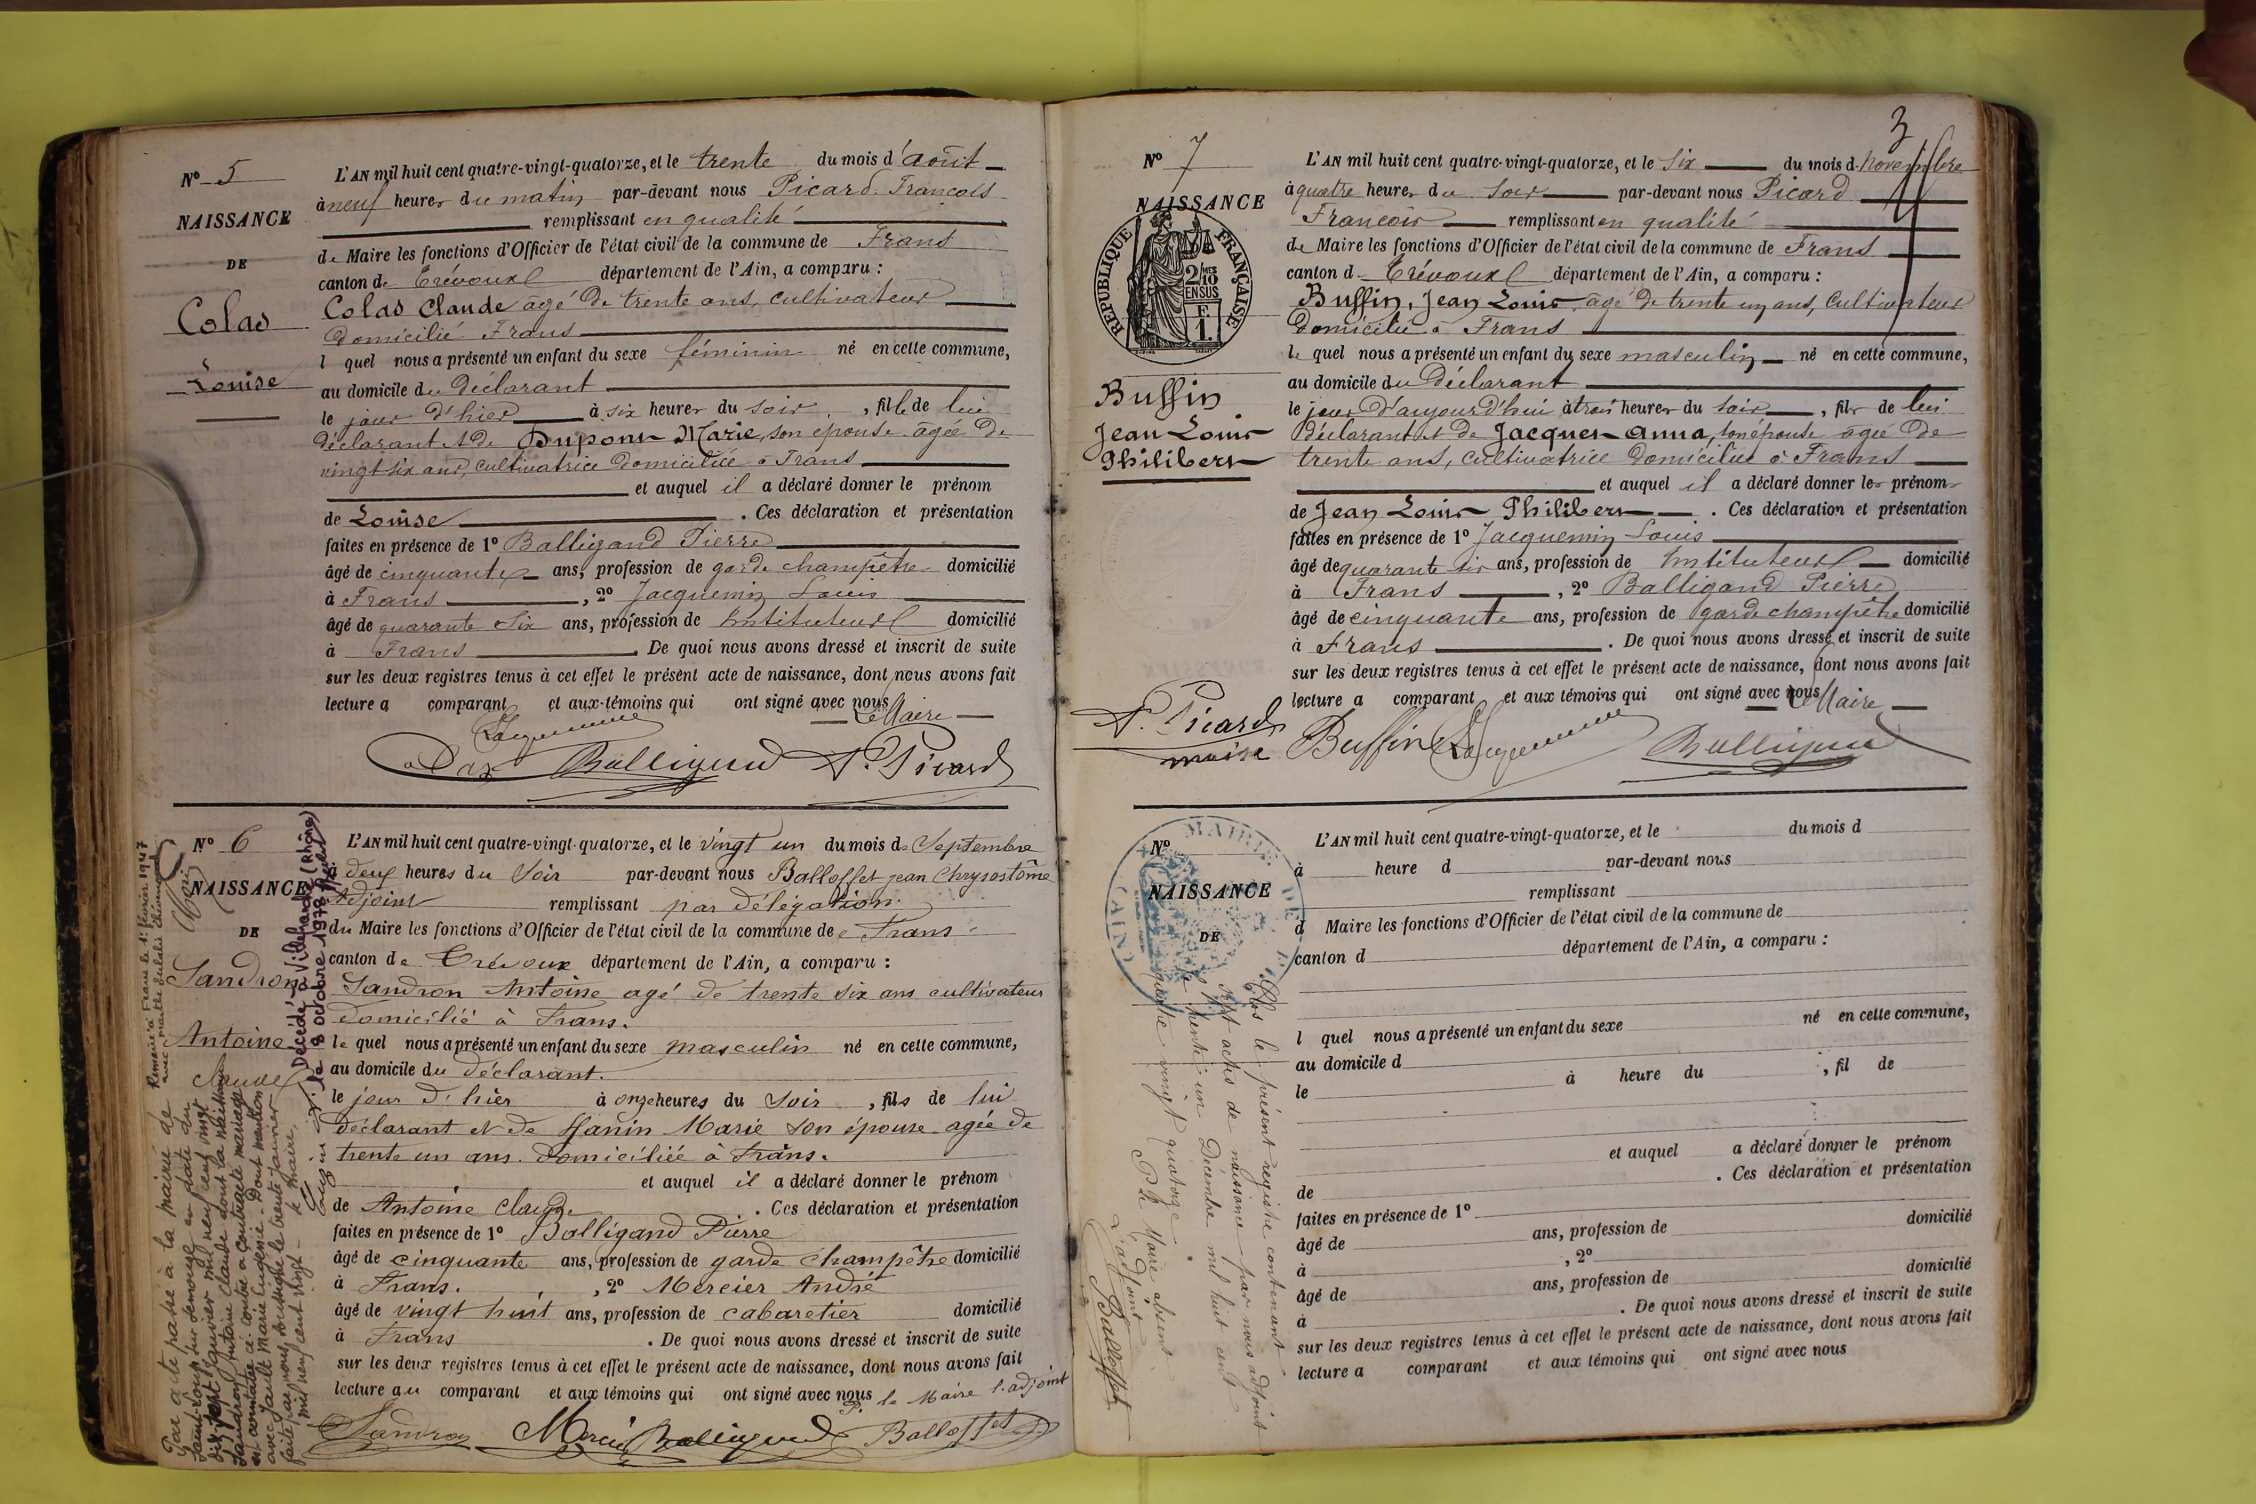 Nº 5
NAISSANCE
DE
Colas
Louise
L'AN mil huit cent quatre-vingt-quatorze, et le trente du mois d'août
à neuf heures du matin par-devant nous Picard François
remplissant en qualité
de Maire les fonctions d'Officier de l'état civil de la commune de Frans
canton de Trévoux département de l'Ain, a comparu :
Colas Claude agé de trente ans, cultivateur
domicilié Frans
l quel nous a présenté un enfant du sexe féminin né en cette commune,
au domicile du déclarant
le jour d'hier à six heures du soir, fille de lui
déclarant et de Dupont Marie, son épouse agée de
vingt six ans, cultivatrice domiciliée à Frans
et auquel il a déclaré donner le prénom
de Louise. Ces déclaration et présentation
faites en présence de 1º Balligand Pierre
âgé de cinquante ans, profession de garde champêtre domicilié
à Frans, 2º Jacquemin Louis
âgé de quarante six ans, profession de Instituteur domicilié
à Frans. De quoi nous avons dressé et inscrit de suite
sur les deux registres tenus à cet effet le présent acte de naissance, dont nous avons fait
lecture a comparant et aux témoins qui ont signé avec nous
Le Maire
Balligand P. Picard
Nº 6
NAISSANCE
DE
Sandron
Antoine
Claude
L'AN mil huit cent quatre-vingt-quatorze, et le vingt un du mois de Septembre
à deux heures du soir par-devant nous Balloffet jean Chrysostôme
Adjoint remplissant par délégation
du Maire les fonctions d'Officier de l'état civil de la commune de Frans
canton de Trévoux département de l'Ain, a comparu :
Sandron Antoine agé de trente six ans cultivateur
domicilié à Frans.
le quel nous a présenté un enfant du sexe masculin né en cette commune,
au domicile du déclarant.
le jour d'hier à onze heures du soir, fils de lui
déclarant et de Hanin Marie son épouse agée de
trente un ans. domiciliée à Frans.
et auquel il a déclaré donner le prénom
de Antoine Claude. Ces déclaration et présentation
faites en présence de 1º Balligand Pierre
âgé de cinquante ans, profession de garde champêtre domicilié
à Frans., 2º Mercier André
âgé de vingt huit ans, profession de cabaretier domicilié
à Frans. De quoi nous avons dressé et inscrit de suite
sur les deux registres tenus à cet effet le présent acte de naissance, dont nous avons fait
lecture au comparant et aux témoins qui ont signé avec nous
P. le Maire l'adjoint
Sandron Mercier Balligand Balloffet
Décédé à Villefranche (Rhône)
le 8 octobre 1978
Remarié à Frans le 1er février 1947
Par acte passé à la mairie de
mil neuf cent vingt
3
Nº 7
NAISSANCE
RÉPUBLIQUE FRANÇAISE
2/10 EN SUS
F. 1.
Buffin
Jean Louis
Philibert
L'AN mil huit cent quatre-vingt-quatorze, et le six du mois d novembre
à quatre heures du soir par-devant nous Picard
François remplissant en qualité
de Maire les fonctions d'Officier de l'état civil de la commune de Frans
canton d Trévoux département de l'Ain, a comparu :
Buffin, Jean Louis agé de trente un ans, cultivateur
domicilié à Frans
le quel nous a présenté un enfant du sexe masculin né en cette commune,
au domicile du déclarant
le jour d'aujourd'hui à trois heures du soir, fils de lui
déclarant et de Jacques Anna, son épouse agée de
trente ans, cultivatrice domiciliée à Frans
et auquel il a déclaré donner les prénoms
de Jean Louis Philibert. Ces déclaration et présentation
faites en présence de 1º Jacquemin Louis
âgé de quarante six ans, profession de Instituteur domicilié
à Frans, 2º Balligand Pierre
âgé de cinquante ans, profession de garde champêtre domicilié
à Frans. De quoi nous avons dressé et inscrit de suite
sur les deux registres tenus à cet effet le présent acte de naissance, dont nous avons fait
lecture a comparant et aux témoins qui ont signé avec nous
Le Maire
P. Picard Buffin Balligand
maire
Nº
NAISSANCE
DE
MAIRIE DE
(AIN)
L'AN mil huit cent quatre-vingt-quatorze, et le du mois d
à heure d par-devant nous
remplissant
d Maire les fonctions d'Officier de l'état civil de la commune de
canton d département de l'Ain, a comparu :
l quel nous a présenté un enfant du sexe né en cette commune,
au domicile d
le à heure du , fil de
et auquel a déclaré donner le prénom
de . Ces déclaration et présentation
faites en présence de 1º
âgé de ans, profession de domicilié
à , 2º
âgé de ans, profession de domicilié
à . De quoi nous avons dressé et inscrit de suite
sur les deux registres tenus à cet effet le présent acte de naissance, dont nous avons fait
lecture a comparant et aux témoins qui ont signé avec nous
Clos le présent registre contenant
sept actes de naissance par nous adjoint
le trente un Décembre mil huit cent
quatre vingt quatorze.
P. le Maire absent
L'adjoint
Balloffet